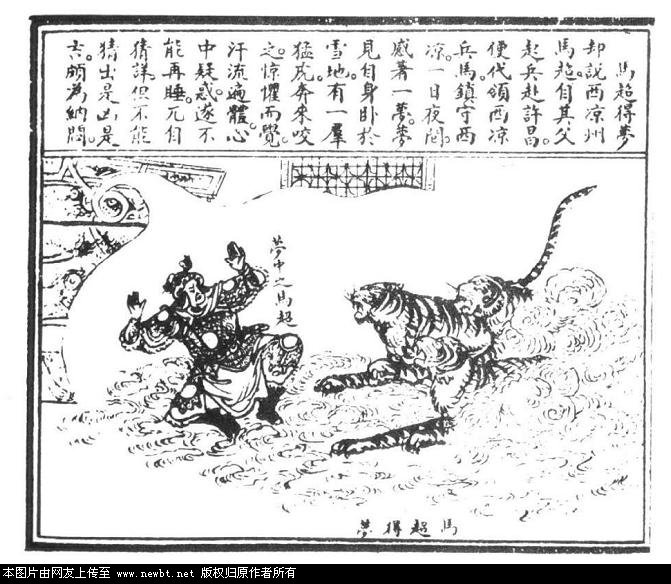 馬超得夢
却説西凉州
馬超自其父
起兵赴許昌。
便代領西凉
兵馬鎮守西
凉。一日夜間。
感著一夢。夢
見自身卧於
雪地。有一羣
猛虎奔來咬
之。惊懼而覺。
汗流遍體。心
中疑惑。遂不
能再睡。兀自
猜詳。但不能
猜出是凶是
吉。頗為納悶。
夢中之馬超
馬超得夢
本图片由网友上传至 www.newbt.net 版权归原作者所有